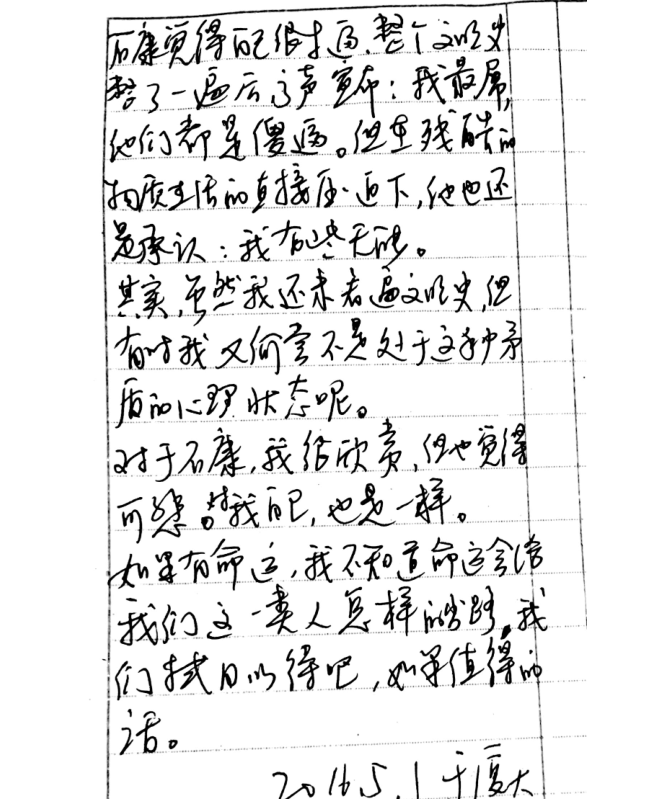 石康觉得自己很才逼,整个文明史
整了一遍后高声宣布:我最屌,
他们都是傻逼。但在残酷的
物质生活的直接压迫下,他也还
是承认:我有些无能。
其实,虽然我还未看遍文明史,但
有时我又何尝不是处于这种矛
盾的心理状态呢。
对于石康,我很欣赏,但也觉得
可悲。对我自己,也是一样。
如果有命运,我不知道命运会给
我们这一类人怎样的出路,我
们拭目以待吧,如果值得的
话。
2016.5.1 于厦大